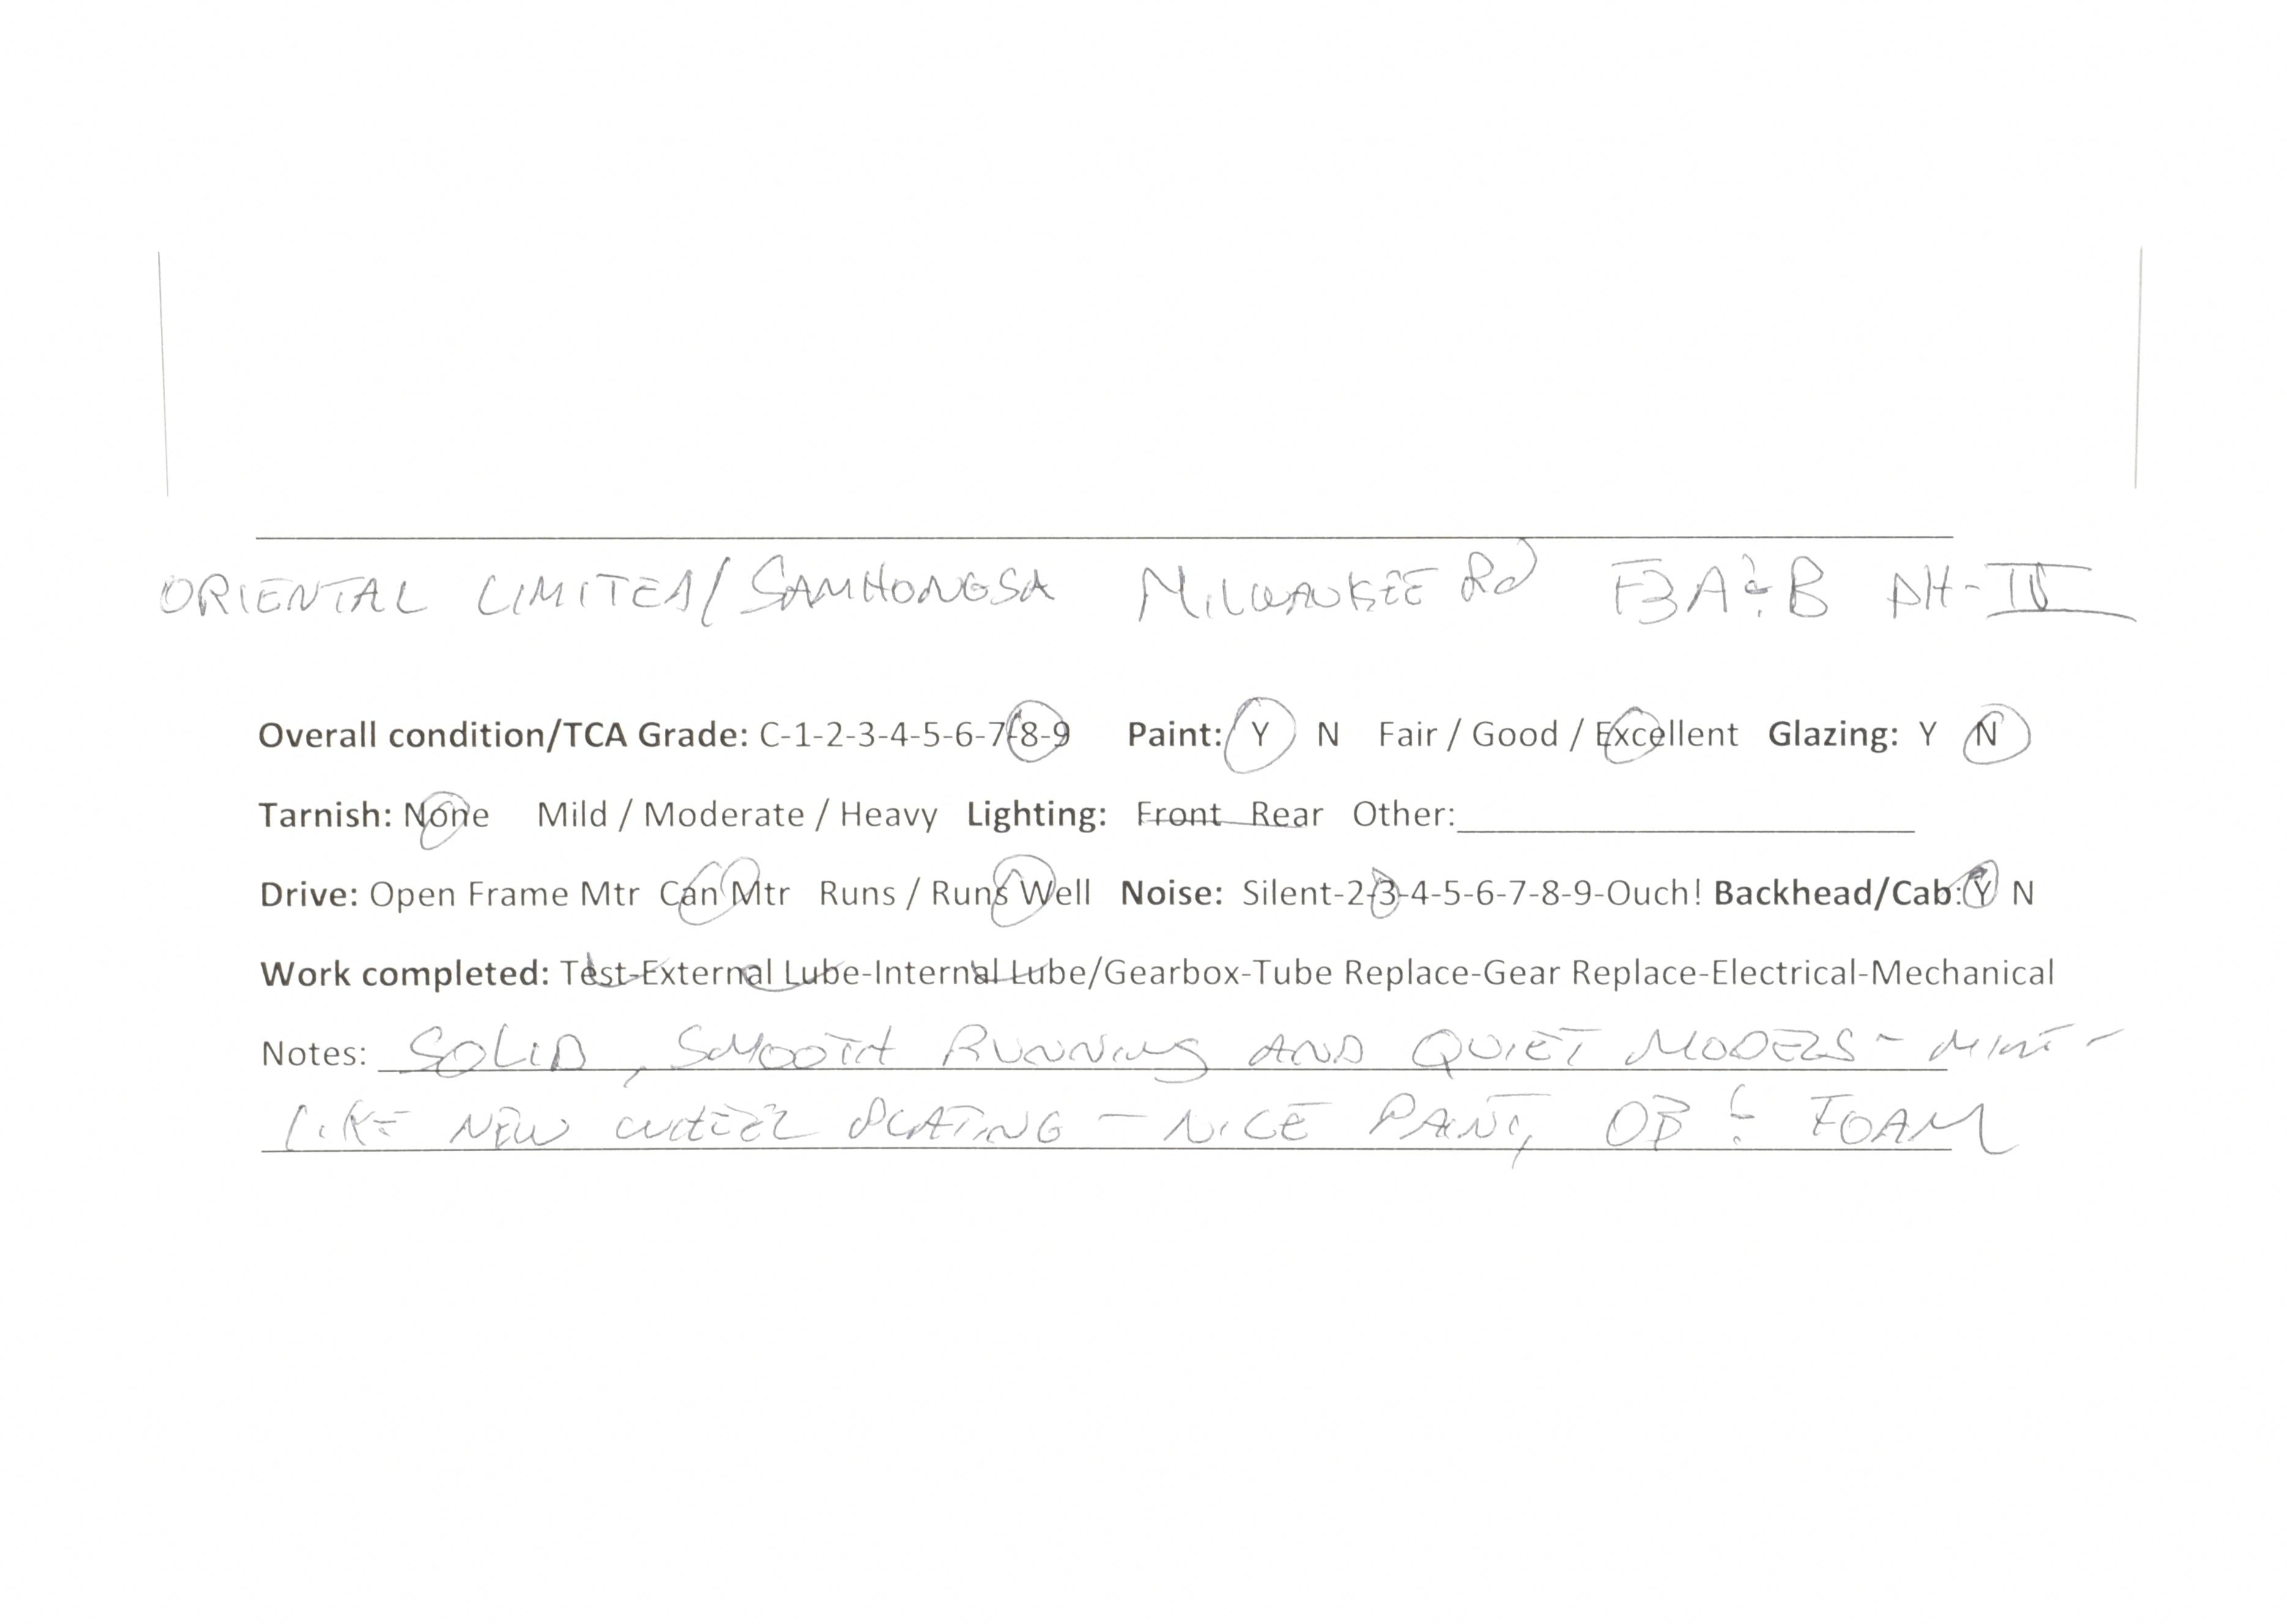 ORIENTAL LIMITED/SAMHONGSA MILWAUKEE Rd F3 A & B PH-III
Overall condition/TCA Grade: C-1-2-3-4-5-6-7-8-9 Paint: Y N Fair / Good / Excellent Glazing: Y N
Tarnish: None Mild / Moderate / Heavy Lighting: Front Rear Other:
Drive: Open Frame Mtr Can Mtr Runs / Runs Well Noise: Silent-2-3-4-5-6-7-8-9-Ouch! Backhead/Cab: Y N
Work completed: Test-External Lube-Internal Lube/Gearbox-Tube Replace-Gear Replace-Electrical-Mechanical
Notes: SOLID, SMOOTH RUNNING AND QUIET MODELS - MINT -
LIKE NEW WHEEL PLATING - NICE PAINT, OB & FOAM